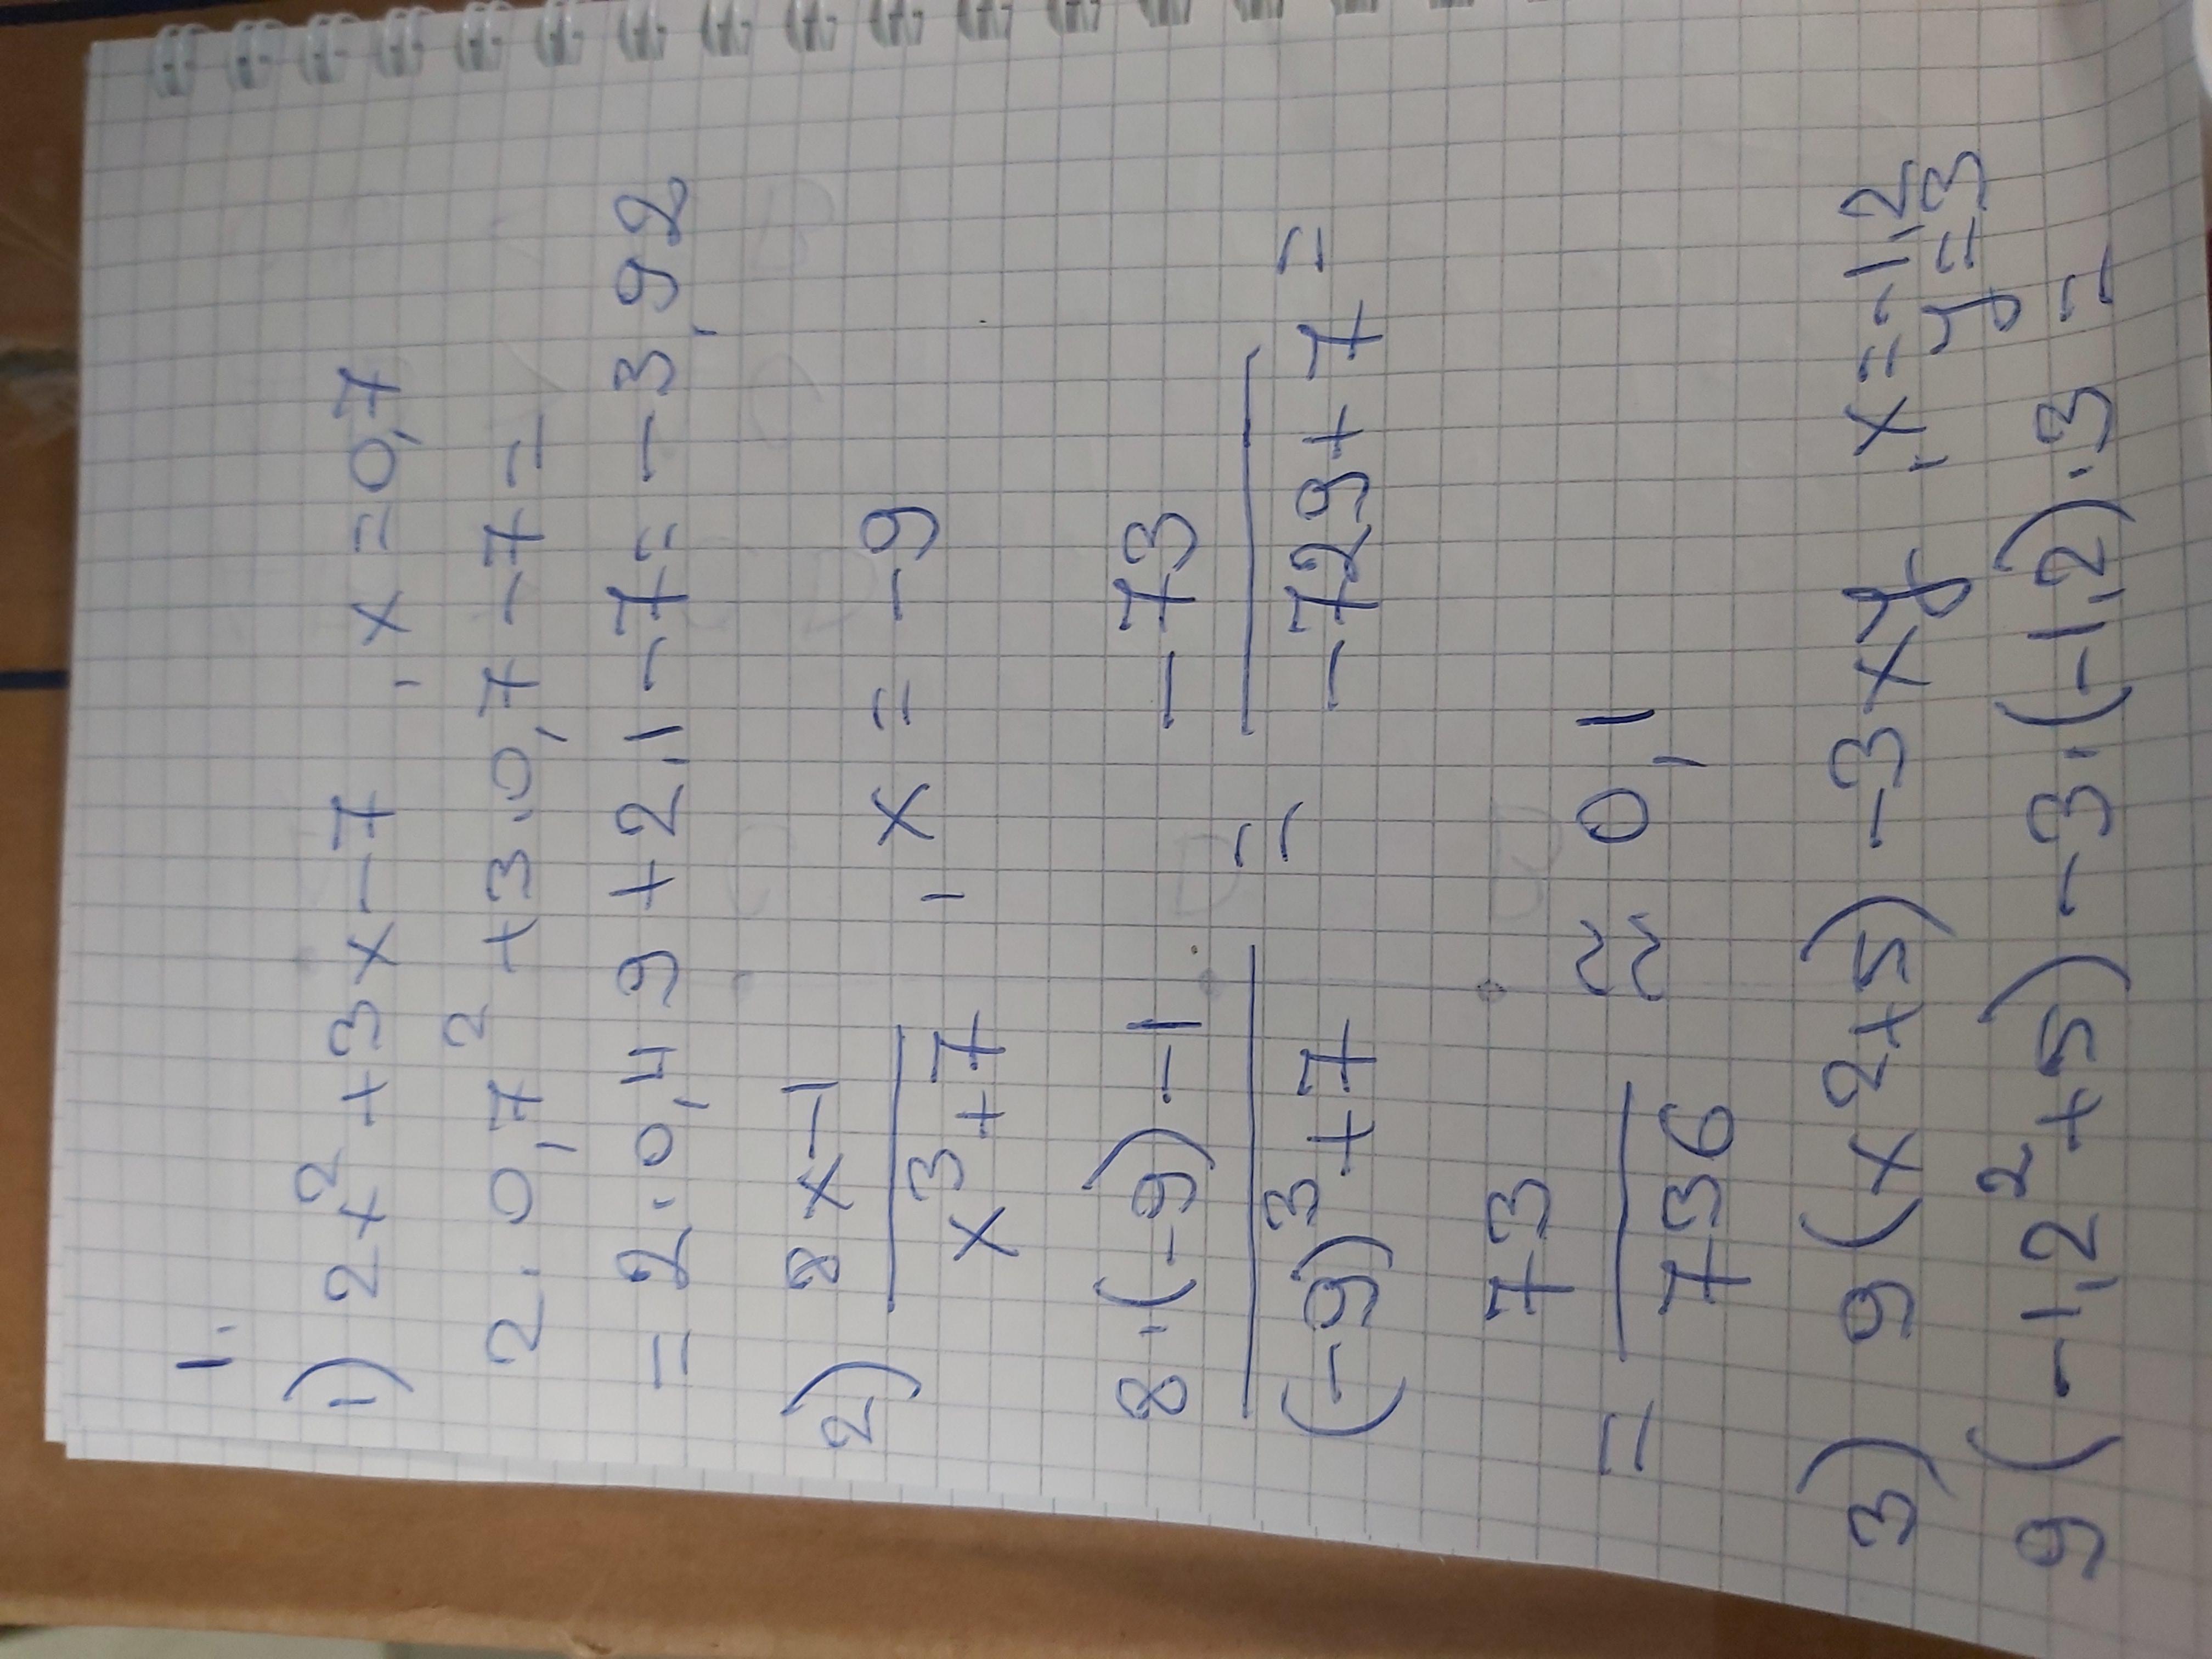 1.
1) 2x² + 3x - 7 , x = 0,7
2 · 0,7² + 3 · 0,7 - 7 =
= 2 · 0,49 + 2,1 - 7 = - 3,92
2) (8x - 1)/(x³ + 7) , x = -9
(8 · (-9) - 1)/((-9)³ + 7) = (-73)/(-729 + 7) =
= 73/736 ≈ 0,1
3) 9(x² + 5) - 3xy , x = -1,2
y = 3
9(-1,2² + 5) - 3 · (-1,2) · 3 =